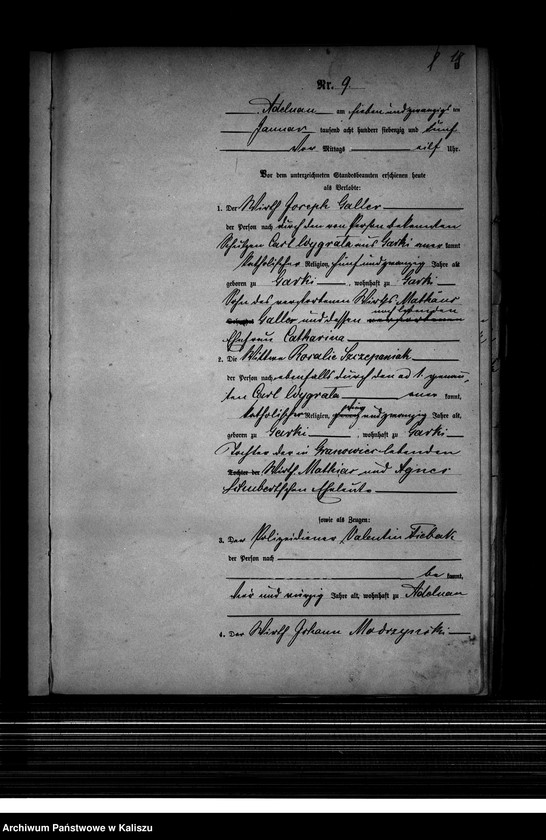 18
Nr. 9
Adelnau am sieben und zwanzigsten
Januar tausend acht hundert siebenzig und fünf
Vor Mittags eilf Uhr.
Vor dem unterzeichneten Standesbeamten erschienen heute
als Verlobte:
1. Der Wirth Joseph Galler
der Person nach durch den von Person bekannten
Schulzen Carl Wygrala aus Garki anerkannt
katholischer Religion, fünf und zwanzig Jahre alt
geboren zu Garki, wohnhaft zu Garki
Sohn des verstorbenen Wirths Mathäus
noch lebenden
Galler und dessen verstorbenen
Ehefrau Catharina
2. Die Wittwe Rosalie Szczepaniak
der Person nach ebenfalls durch den ad 1. genann-
ten Carl Wygrala aner kannt,
katholischer Religion, und zwanzig Jahre alt,
geboren zu Garki, wohnhaft zu Garki
Tochter der in Granowiec lebenden
Tochter der Wirth Mathias und Agnes
Schubertschen Eheleute
sowie als Zeugen:
3. Der Polizeidiener Valentin
der Person nach
be kannt,
vier und vierzig Jahre alt, wohnhaft zu Adelnau
4. Der Wirth Johann Modrzynski
Archiwum Państwowe w Kaliszu